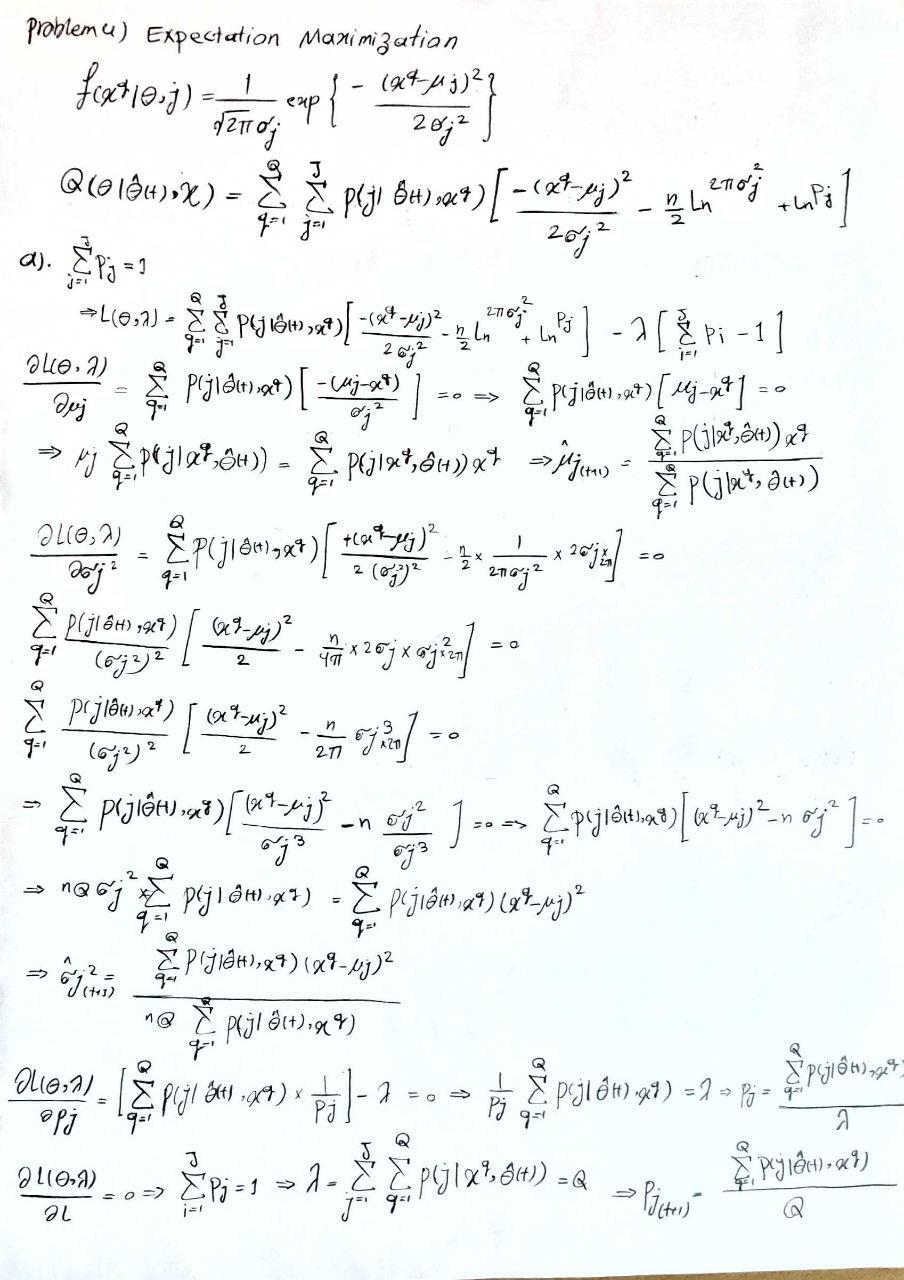 Problem 4) Expectation Maximization
f(x^q|θ,j) = 1/(√2π σj) exp { - (x^q-μj)²/2σj² }
Q(θ|θ̂(t),X) = Σ_{q=1}^{Q} Σ_{j=1}^{J} P(j|θ̂(t),x^q) [ -(x^q-μj)²/2σj² - n/2 Ln^{2πσj²} + Ln^{Pj} ]
a). Σ_{j=1}^{J} Pj = 1
⇒ L(θ,λ) = Σ_{q=1}^{Q} Σ_{j=1}^{J} P(j|θ̂(t),x^q) [ -(x^q-μj)²/2σj² - n/2 Ln^{2πσj²} + Ln^{Pj} ] - λ [ Σ_{i=1}^{J} Pi - 1 ]
∂L(θ,λ)/∂μj = Σ_{q=1}^{Q} P(j|θ̂(t),x^q) [ -(μj-x^q)/σj² ] = 0 ⇒ Σ_{q=1}^{Q} P(j|θ̂(t),x^q) [ μj-x^q ] = 0
⇒ μj Σ_{q=1}^{Q} P(j|x^q,θ̂(t)) = Σ_{q=1}^{Q} P(j|x^q,θ̂(t)) x^q ⇒ μ̂j(t+1) = Σ_{q=1}^{Q} P(j|x^q,θ̂(t)) x^q / Σ_{q=1}^{Q} P(j|x^q,θ̂(t))
∂L(θ,λ)/∂σj² = Σ_{q=1}^{Q} P(j|θ̂(t),x^q) [ +(x^q-μj)²/2(σj²)² - n/2 × 1/2πσj² × 2σj × 2π ] = 0
Σ_{q=1}^{Q} P(j|θ̂(t),x^q)/(σj²)² [ (x^q-μj)²/2 - n/4π × 2σj × σj² × 2π ] = 0
Σ_{q=1}^{Q} P(j|θ̂(t),x^q)/(σj²)² [ (x^q-μj)²/2 - n/2π σj³ × 2π ] = 0
⇒ Σ_{q=1}^{Q} P(j|θ̂(t),x^q) [ (x^q-μj)²/σj³ - n σj²/σj³ ] = 0 ⇒ Σ_{q=1}^{Q} P(j|θ̂(t),x^q) [ (x^q-μj)² - n σj² ] = 0
⇒ nQ σj² × Σ_{q=1}^{Q} P(j|θ̂(t),x^q) = Σ_{q=1}^{Q} P(j|θ̂(t),x^q) (x^q-μj)²
⇒ σ̂j²(t+1) = Σ_{q=1}^{Q} P(j|θ̂(t),x^q) (x^q-μj)² / nQ Σ_{q=1}^{Q} P(j|θ̂(t),x^q)
∂L(θ,λ)/∂Pj = [ Σ_{q=1}^{Q} P(j|θ̂(t),x^q) × 1/Pj ] - λ = 0 ⇒ 1/Pj Σ_{q=1}^{Q} P(j|θ̂(t),x^q) = λ ⇒ Pj = Σ_{q=1}^{Q} P(j|θ̂(t),x^q) / λ
∂L(θ,λ)/∂L = 0 ⇒ Σ_{i=1}^{J} Pj = 1 ⇒ λ = Σ_{j=1}^{J} Σ_{q=1}^{Q} P(j|x^q,θ̂(t)) = Q ⇒ Pj(t+1) = Σ_{q=1}^{Q} P(j|θ̂(t),x^q) / Q